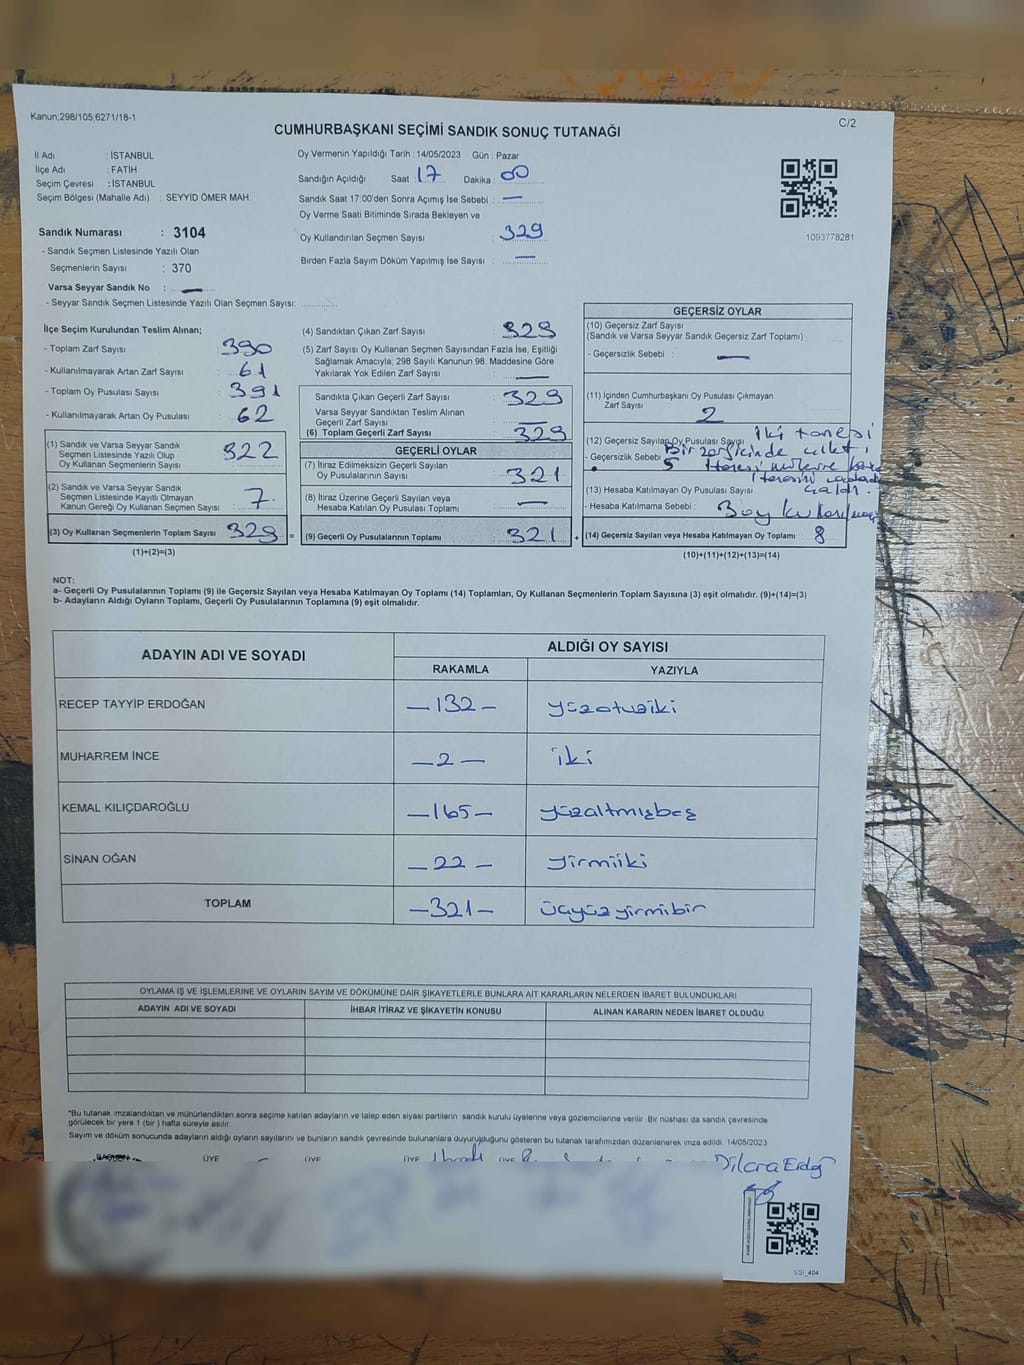 Kanun;298/105;6271/18-1
C/2
CUMHURBAŞKANI SEÇİMİ SANDIK SONUÇ TUTANAĞI
İl Adı : İSTANBUL
İlçe Adı : FATİH
Seçim Çevresi : İSTANBUL
Seçim Bölgesi (Mahalle Adı) : SEYYİD ÖMER MAH.
Sandık Numarası : 3104
- Sandık Seçmen Listesinde Yazılı Olan
Seçmenlerin Sayısı : 370
Varsa Seyyar Sandık No : —
- Seyyar Sandık Seçmen Listesinde Yazılı Olan Seçmen Sayısı:
Oy Vermenin Yapıldığı Tarih : 14/05/2023 Gün : Pazar
Sandığın Açıldığı Saat : 17 Dakika : 00
Sandık Saat 17:00'den Sonra Açımış İse Sebebi : —
Oy Verme Saati Bitiminde Sırada Bekleyen ve
Oy Kullandırılan Seçmen Sayısı : 329
Birden Fazla Sayım Döküm Yapılmış İse Sayısı : —
1093778281
İlçe Seçim Kurulundan Teslim Alınan;
- Toplam Zarf Sayısı : 390
- Kullanılmayarak Artan Zarf Sayısı : 61
- Toplam Oy Pusulası Sayısı : 391
- Kullanılmayarak Artan Oy Pusulası : 62
(1) Sandık ve Varsa Seyyar Sandık
Seçmen Listesinde Yazılı Olup
Oy Kullanan Seçmenlerin Sayısı : 322
(2) Sandık ve Varsa Seyyar Sandık
Seçmen Listesinde Kayıtlı Olmayan
Kanun Gereği Oy Kullanan Seçmen Sayısı : 7
(3) Oy Kullanan Seçmenlerin Toplam Sayısı : 329
(1)+(2)=(3)
(4) Sandıktan Çıkan Zarf Sayısı : 329
(5) Zarf Sayısı Oy Kullanan Seçmen Sayısından Fazla İse, Eşitliği
Sağlamak Amacıyla; 298 Sayılı Kanunun 98. Maddesine Göre
Yakılarak Yok Edilen Zarf Sayısı : —
Sandıkta Çıkan Geçerli Zarf Sayısı : 329
Varsa Seyyar Sandıktan Teslim Alınan
Geçerli Zarf Sayısı : —
(6) Toplam Geçerli Zarf Sayısı : 329
GEÇERLİ OYLAR
(7) İtiraz Edilmeksizin Geçerli Sayılan
Oy Pusulalarının Sayısı : 321
(8) İtiraz Üzerine Geçerli Sayılan veya
Hesaba Katılan Oy Pusulası Toplamı : —
(9) Geçerli Oy Pusulalarının Toplamı : 321
GEÇERSİZ OYLAR
(10) Geçersiz Zarf Sayısı
(Sandık ve Varsa Seyyar Sandık Geçersiz Zarf Toplamı) :
- Geçersizlik Sebebi : —
(11) İçinden Cumhurbaşkanı Oy Pusulası Çıkmayan
Zarf Sayısı 2
(12) Geçersiz Sayılan Oy Pusulası Sayısı iki tanesi
- Geçersizlik Sebebi Bir zarf içinde
5
(13) Hesaba Katılmayan Oy Pusulası Sayısı
- Hesaba Katılmama Sebebi :
(14) Geçersiz Sayılan veya Hesaba Katılmayan Oy Toplamı : 8
(10)+(11)+(12)+(13)=(14)
NOT:
a- Geçerli Oy Pusulalarının Toplamı (9) ile Geçersiz Sayılan veya Hesaba Katılmayan Oy Toplamı (14) Toplamları, Oy Kullanan Seçmenlerin Toplam Sayısına (3) eşit olmalıdır. (9)+(14)=(3)
b- Adayların Aldığı Oyların Toplamı, Geçerli Oy Pusulalarının Toplamına (9) eşit olmalıdır.
ADAYIN ADI VE SOYADI ALDIĞI OY SAYISI
RAKAMLA YAZIYLA
RECEP TAYYİP ERDOĞAN —132— yüzotuziki
MUHARREM İNCE —2— iki
KEMAL KILIÇDAROĞLU —165— yüzaltmışbeş
SİNAN OĞAN —22— yirmiiki
TOPLAM —321— üçyüzyirmibir
OYLAMA İŞ VE İŞLEMLERİNE VE OYLARIN SAYIM VE DÖKÜMÜNE DAİR ŞİKAYETLERLE BUNLARA AİT KARARLARIN NELERDEN İBARET BULUNDUKLARI
ADAYIN ADI VE SOYADI İHBAR İTİRAZ VE ŞİKAYETİN KONUSU ALINAN KARARIN NEDEN İBARET OLDUĞU
*Bu tutanak imzalandıktan ve mühürlendikten sonra seçime katılan adayların ve talep eden siyasi partilerin sandık kurulu üyelerine veya gözlemcilerine verilir. Bir nüshası da sandık çevresinde
görülecek bir yere 1 (bir) hafta süreyle asılır.
Sayım ve döküm sonucunda adayların aldığı oyların sayılarını ve bunların sandık çevresinde bulunanlara duyurulduğunu gösteren bu tutanak tarafımızdan düzenlenerek imza edildi. 14/05/2023
BAŞKAN ÜYE ÜYE ÜYE ÜYE Dilara
SSİ_404